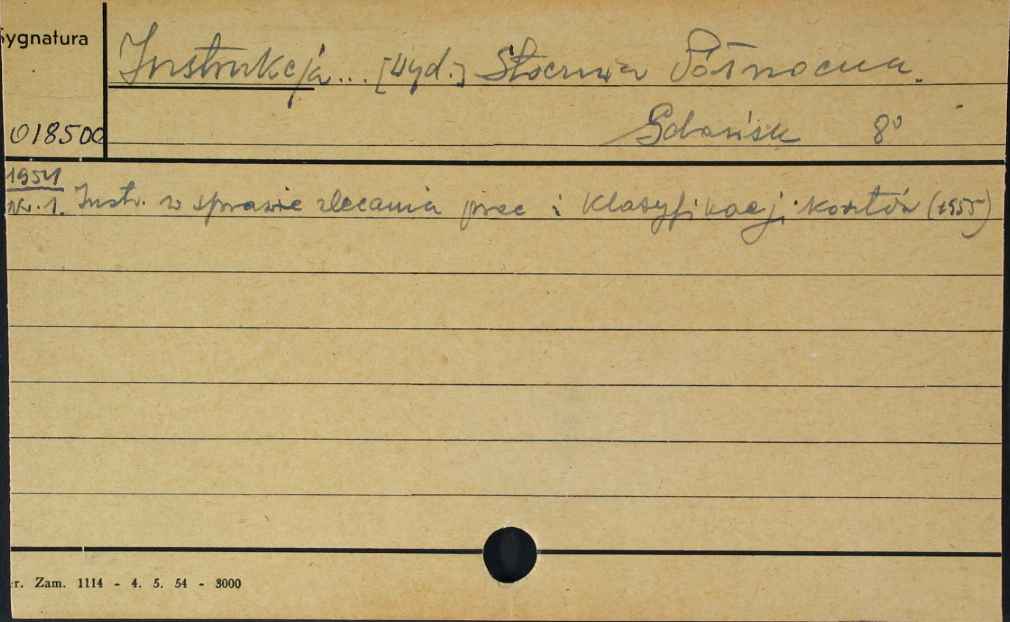 Sygnatura
Instrukcja... [Wyd.] Stocznia Północna.
018500
Gdańsk 8°
1954
Nr. 1. Instr. w sprawie zlecania prac i klasyfikacji kosztów (1955)
r. Zam. 1114 - 4. 5. 54 - 3000